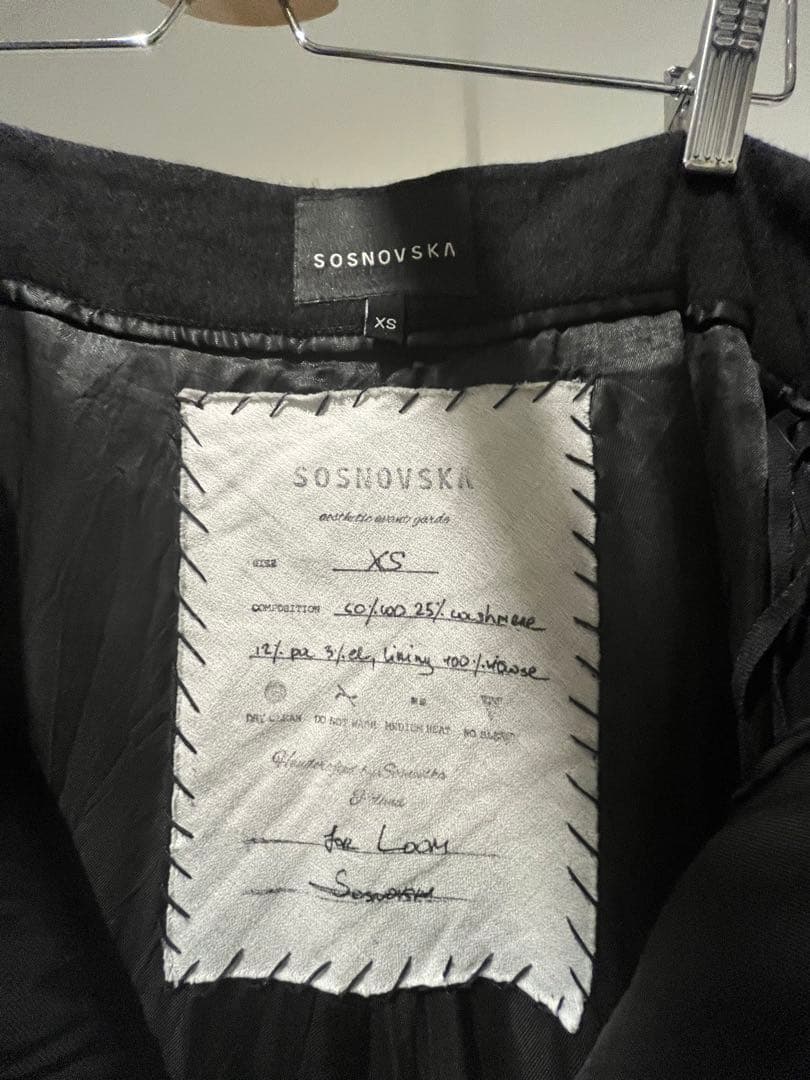 SOSNOVSKA
XS
SOSNOVSKA
aesthetic avant garde
SIZE XS
COMPOSITION 60% 25% cashmere
12% pa 3% el, lining 100% viscose
DRY CLEAN DO NOT WASH MEDIUM HEAT NO BLEACH
Handcrafted by
for LOOM
Sosnovska